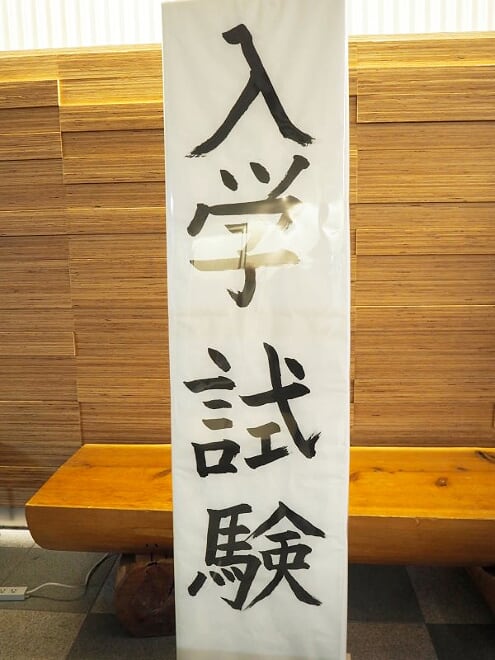 入学試験